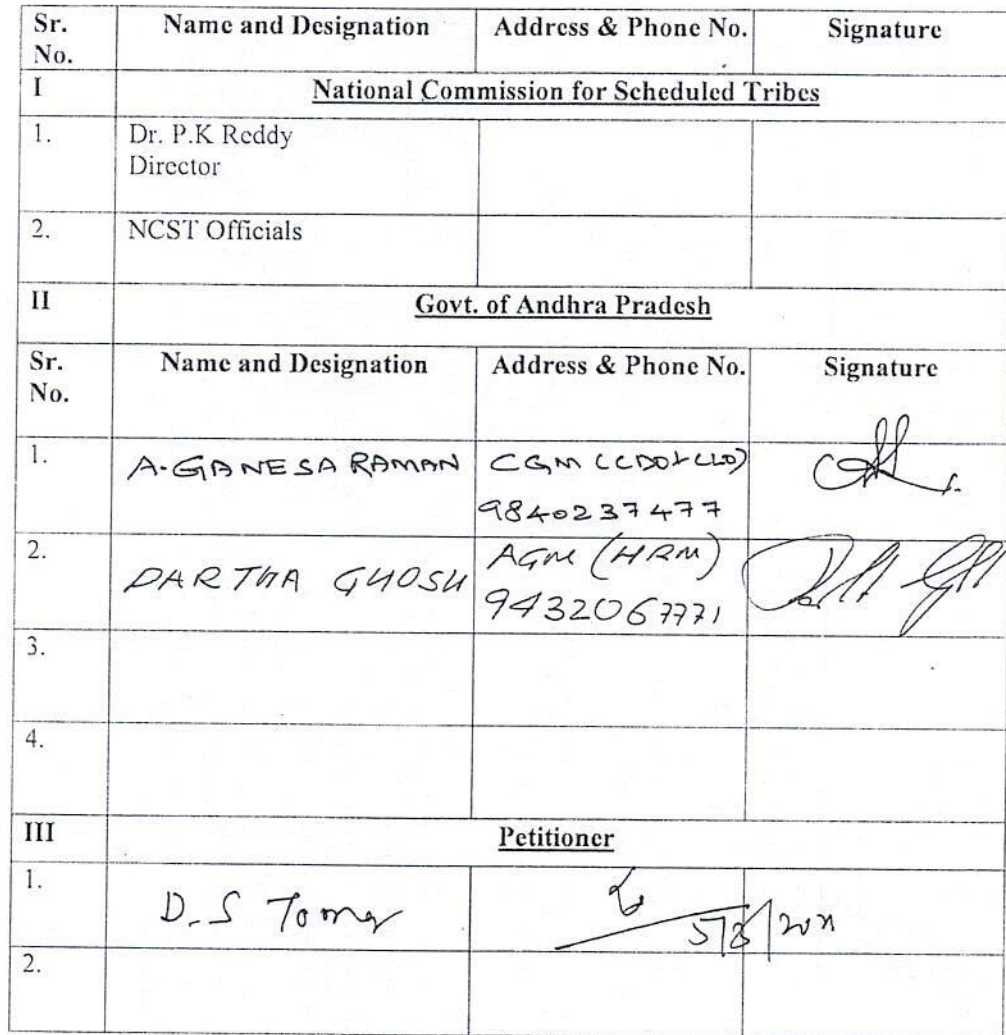 Sr. No. Name and Designation Address & Phone No. Signature
I National Commission for Scheduled Tribes
1. Dr. P.K Reddy
Director
2. NCST Officials
II Govt. of Andhra Pradesh
Sr. No. Name and Designation Address & Phone No. Signature
1. A. GANESA RAMAN CGM
9840237477
2. PARTHA GHOSH AGM (HRM)
9432067771
3.
4.
III Petitioner
1. D.S Tomar
2.